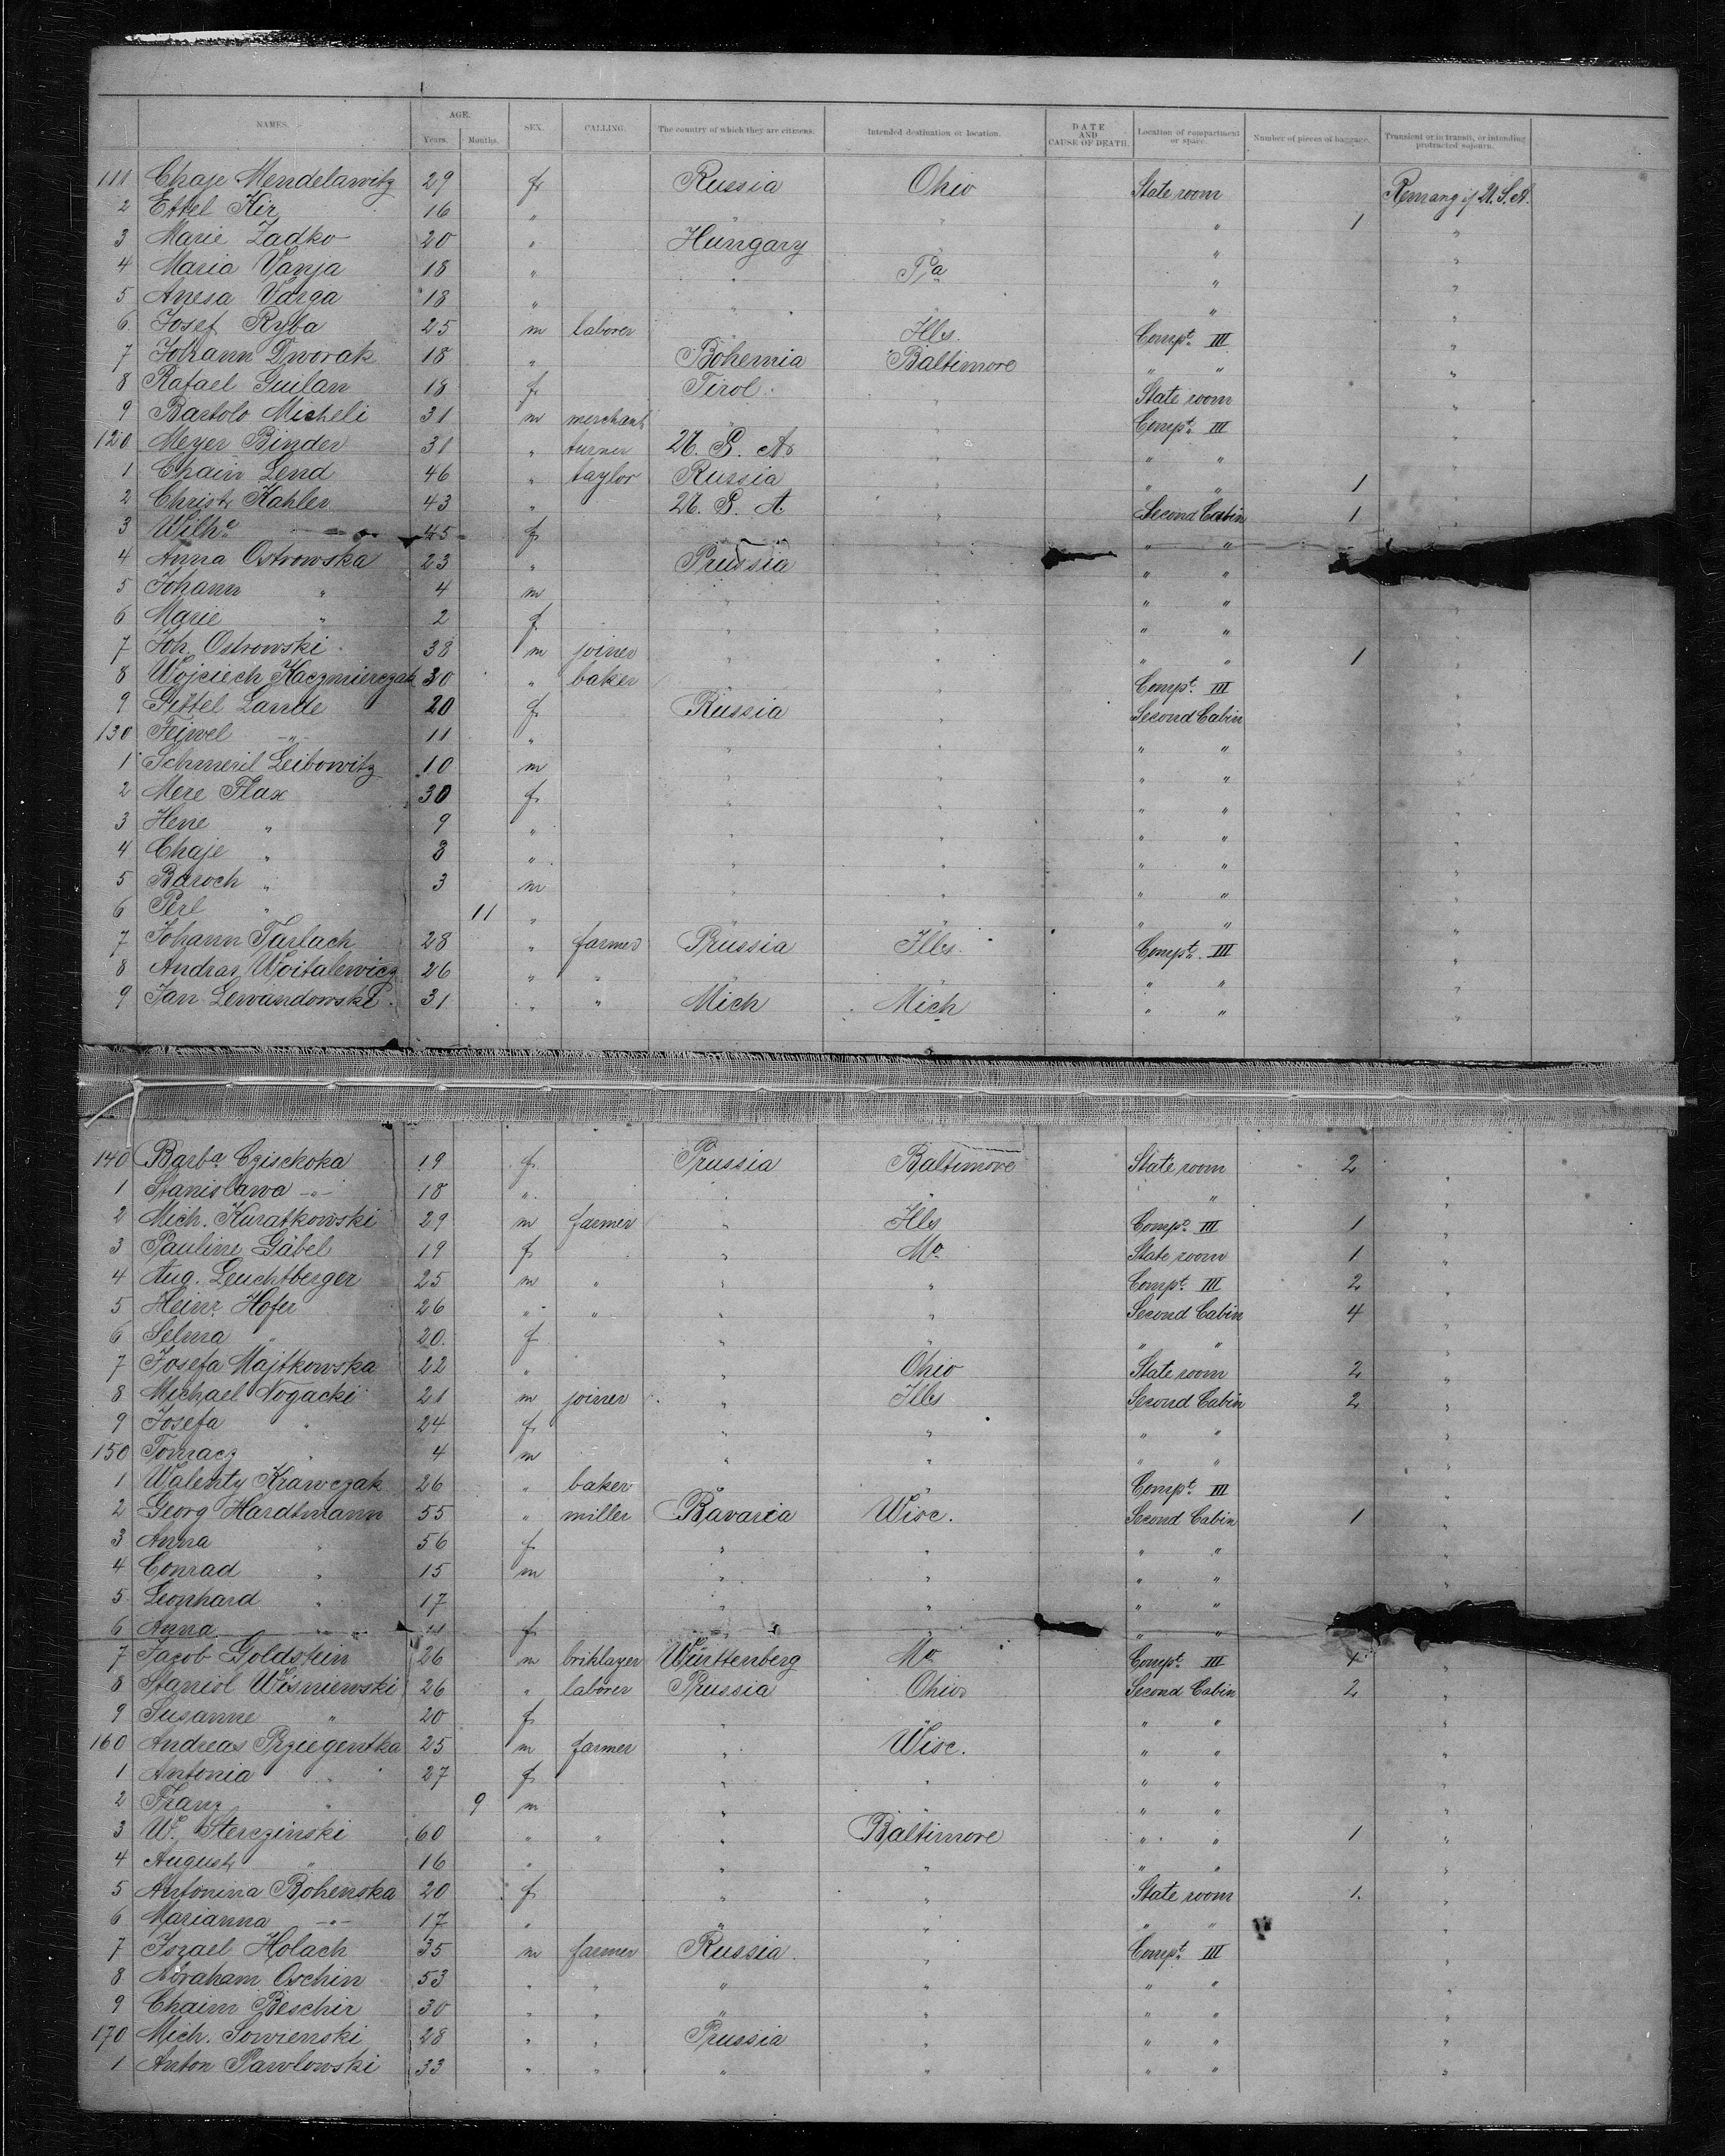 NAMES. AGE. Years. Months. SEX. CALLING. The country of which they are citizens. Intended destination or location. DATE AND CAUSE OF DEATH. Location of compartment or space. Number of pieces of baggage. Transient or in transit, or intending protracted sojourn.
111 Chaje Mendelawitz 29 f Russia Ohio State room U.S.A.
2 Ettel Kir 16 " " " 1 "
3 Marie Zadko 20 " Hungary " " "
4 Maria Vanja 18 " " Pa " "
5 Anesa Varga 18 " " " " "
6 Josef Ryba 25 m laborer " Ills. Compt. III "
7 Johann Dworak 18 " Bohemia Baltimore " " "
8 Rafael Guilan 18 f Tirol " State room "
9 Bartolo Micheli 31 m merchant " " Compt. III "
120 Meyer Binder 31 " turner U. S. A. " " " "
1 Chaim Lend 46 " taylor Russia " " " 1 "
2 Christ. Kahler 43 " U. S. A. " Second Cabin 1 "
3 Wilhe " 45 f " " " "
4 Anna Ostrowska 23 " Prussia " " "
5 Johann " 4 m " " " " "
6 Marie " 2 f " " " " "
7 Joh. Ostrowski 38 m joiner " " " " 1 "
8 Wojciech Kaczmierczak 30 " baker " " Compt. III "
9 Gittel Lande 20 f Russia " Second Cabin "
130 Feiwel " 11 " " " " " "
1 Schmeril Leibowitz 10 m " " " " "
2 Mere Flax 30 f " " " " "
3 Hene " 9 " " " " " "
4 Chaje " 8 " " " " " "
5 Baroch " 3 m " " " " "
6 Perl " 11 " " " " " "
7 Johann Tarlach 28 " farmer Prussia Ills. Compt. III "
8 Andras Woitalewicz 26 " " " " " " "
9 Jan Lewandowski 31 " " Mich Mich " " "
140 Barba Czisckoka 19 f Prussia Baltimore State room 2 "
1 Stanislawa " 18 " " " " "
2 Mich. Kuratkowski 29 m farmer " Ills Compt. III 1 "
3 Pauline Gäbel 19 f " Mo State room 1 "
4 Aug. Leuchtberger 25 m " " " Compt. III 2 "
5 Heinr. Hofer 26 " " " " Second Cabin 4 "
6 Selma " 20 f " " " " "
7 Josefa Majtkowska 22 " " Ohio State room 2 "
8 Michael Nogacki 21 m joiner " Ills Second Cabin 2 "
9 Josefa " 24 f " " " " "
150 Tomacz " 4 m " " " " "
1 Walenty Krawczak 26 " baker " " Compt. III "
2 Georg Hardtmann 55 " miller Bavaria Wisc. Second Cabin 1 "
3 Anna " 56 f " " " " "
4 Conrad " 15 m " " " " "
5 Leonhard " 17 " " " "
6 Anna " 11 f " " " "
7 Jacob Goldstein 26 m briklayer Württenberg Mo Compt. III "
8 Staniol Wisniewski 26 " laborer Prussia Ohio Second Cabin 2 "
9 Susanne " 20 f " " " " "
160 Andreas Prziegentka 25 m farmer " Wisc. " " "
1 Antonia " 27 f " " " " "
2 Franz " 9 m " " " " "
3 W. Sterczinski 60 " " " Baltimore " " 1 "
4 August " 16 " " " " " "
5 Antonina Bohenska 20 f " " State room 1 "
6 Marianna " 17 " " " " " "
7 Israel Holach 35 m farmer Russia " Compt. III "
8 Abraham Oschin 53 " " " " " " "
9 Chaim Beschir 30 " " " " " " "
170 Mich. Sowienski 28 " " Prussia " " " "
1 Anton Pawlowski 33 " " " " " " "